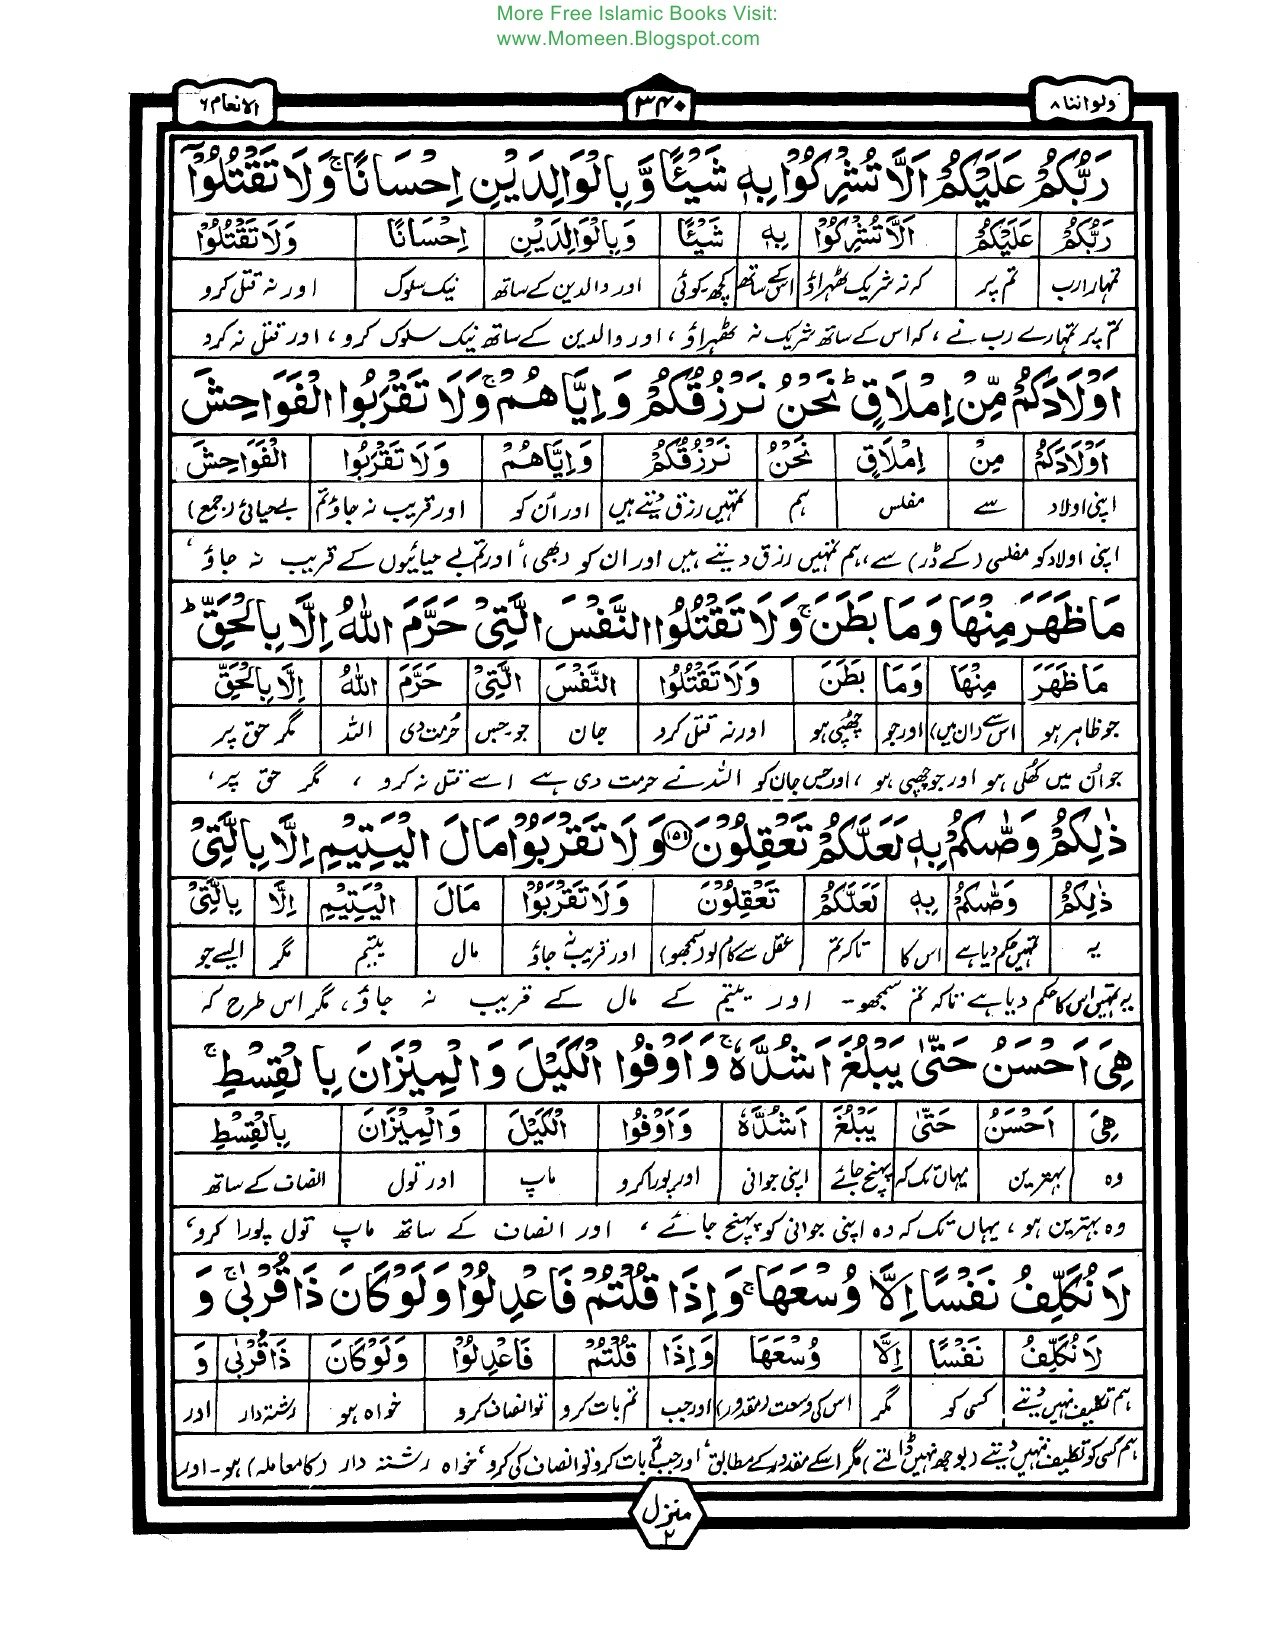 More Free Islamic Books Visit:
www.Momeen.Blogspot.com
ولو اننا ۸ ۳۴۰ الانعام ۶
رَبُّكُمْ عَلَيْكُمْ اَلَّا تُشْرِكُوْا بِهٖ شَيْـًٔا وَّ بِالْوَالِدَيْنِ اِحْسَانًا ۚ وَلَا تَقْتُلُوْۤا
رَبُّكُمْ عَلَيْكُمْ اَلَّا تُشْرِكُوْا بِهٖ شَيْـًٔا وَبِالْوَالِدَيْنِ اِحْسَانًا وَلَا تَقْتُلُوْۤا
تمہارا رب تم پر کہ نہ شریک ٹھہراؤ اس کے ساتھ کچھ-کوئی اور والدین کے ساتھ نیک سلوک اور نہ قتل کرو
تم پر تمہارے رب نے ، کہ اس کے ساتھ شریک نہ ٹھہراؤ ، اور والدین کے ساتھ نیک سلوک کرو ، اور قتل نہ کرو
اَوْلَادَكُمْ مِّنْ اِمْلَاقٍ ؕ نَحْنُ نَرْزُقُكُمْ وَ اِيَّاهُمْ ۚ وَلَا تَقْرَبُوا الْفَوَاحِشَ
اَوْلَادَكُمْ مِنْ اِمْلَاقٍ نَحْنُ نَرْزُقُكُمْ وَاِيَّاهُمْ وَلَا تَقْرَبُوا الْفَوَاحِشَ
اپنی اولاد سے مفلس ہم تمہیں رزق دیتے ہیں اور اُن کو اور قریب نہ جاؤ تم بےحیائی (جمع)
اپنی اولاد کو مفلسی (کے ڈر) سے، ہم تمہیں رزق دیتے ہیں اور ان کو (بھی)، اور تم بے حیائیوں کے قریب نہ جاؤ ،
مَا ظَهَرَ مِنْهَا وَ مَا بَطَنَ ۚ وَلَا تَقْتُلُوا النَّفْسَ الَّتِيْ حَرَّمَ اللّٰهُ اِلَّا بِالْحَقِّ ؕ
مَا ظَهَرَ مِنْهَا وَمَا بَطَنَ وَلَا تَقْتُلُوا النَّفْسَ الَّتِيْ حَرَّمَ اللّٰهُ اِلَّا بِالْحَقِّ
جو ظاہر ہو اس سے (ان میں) اور جو چھپی ہو اور نہ قتل کرو جان جو جس حُرمت دی اللہ مگر حق پر
جو اُن میں کھلی ہو اور جو چھپی ہو ، اور جس جان کو اللہ نے حرمت دی ہے اسے قتل نہ کرو ، مگر حق پر ،
ذٰلِكُمْ وَصّٰىكُمْ بِهٖ لَعَلَّكُمْ تَعْقِلُوْنَ ۱۵۱ وَ لَا تَقْرَبُوْا مَالَ الْيَتِيْمِ اِلَّا بِالَّتِيْ
ذٰلِكُمْ وَصّٰىكُمْ بِهٖ لَعَلَّكُمْ تَعْقِلُوْنَ وَلَا تَقْرَبُوْا مَالَ الْيَتِيْمِ اِلَّا بِالَّتِيْ
یہ تمہیں حکم دیا ہے اس کا تاکہ تم عقل سے کام لو (سمجھو) اور قریب نہ جاؤ مال یتیم مگر ایسے جو
یہ تمہیں اس کا حکم دیا ہے تاکہ تم سمجھو- اور یتیم کے مال کے قریب نہ جاؤ ، مگر اس طرح کہ
هِيَ اَحْسَنُ حَتّٰى يَبْلُغَ اَشُدَّهٗ ۚ وَ اَوْفُوا الْكَيْلَ وَ الْمِيْزَانَ بِالْقِسْطِ ۚ
هِيَ اَحْسَنُ حَتّٰى يَبْلُغَ اَشُدَّهٗ وَاَوْفُوا الْكَيْلَ وَالْمِيْزَانَ بِالْقِسْطِ
وہ بہترین یہاں تک کہ پہنچ جائے اپنی جوانی اور پورا کرو ماپ اور تول انصاف کے ساتھ
وہ بہترین ہو ، یہاں تک کہ وہ اپنی جوانی کو پہنچ جائے ، اور انصاف کے ساتھ ماپ تول پورا کرو ،
لَا نُكَلِّفُ نَفْسًا اِلَّا وُسْعَهَا ۚ وَ اِذَا قُلْتُمْ فَاعْدِلُوْا وَ لَوْ كَانَ ذَا قُرْبٰى ۚ وَ
لَا نُكَلِّفُ نَفْسًا اِلَّا وُسْعَهَا وَاِذَا قُلْتُمْ فَاعْدِلُوْا وَلَوْ كَانَ ذَا قُرْبٰى وَ
ہم تکلیف نہیں دیتے کسی کو مگر اس کی وسعت (مقدور) اور جب تم بات کرو تو انصاف کرو خواہ ہو رشتہ دار اور
ہم کسی کو تکلیف نہیں دیتے (بوجھ نہیں ڈالتے) مگر اسکے مقدور کے مطابق ، اور جب تم بات کرو تو انصاف کی کرو ، خواہ رشتہ دار (کا معاملہ) ہو - اور
منزل ۲